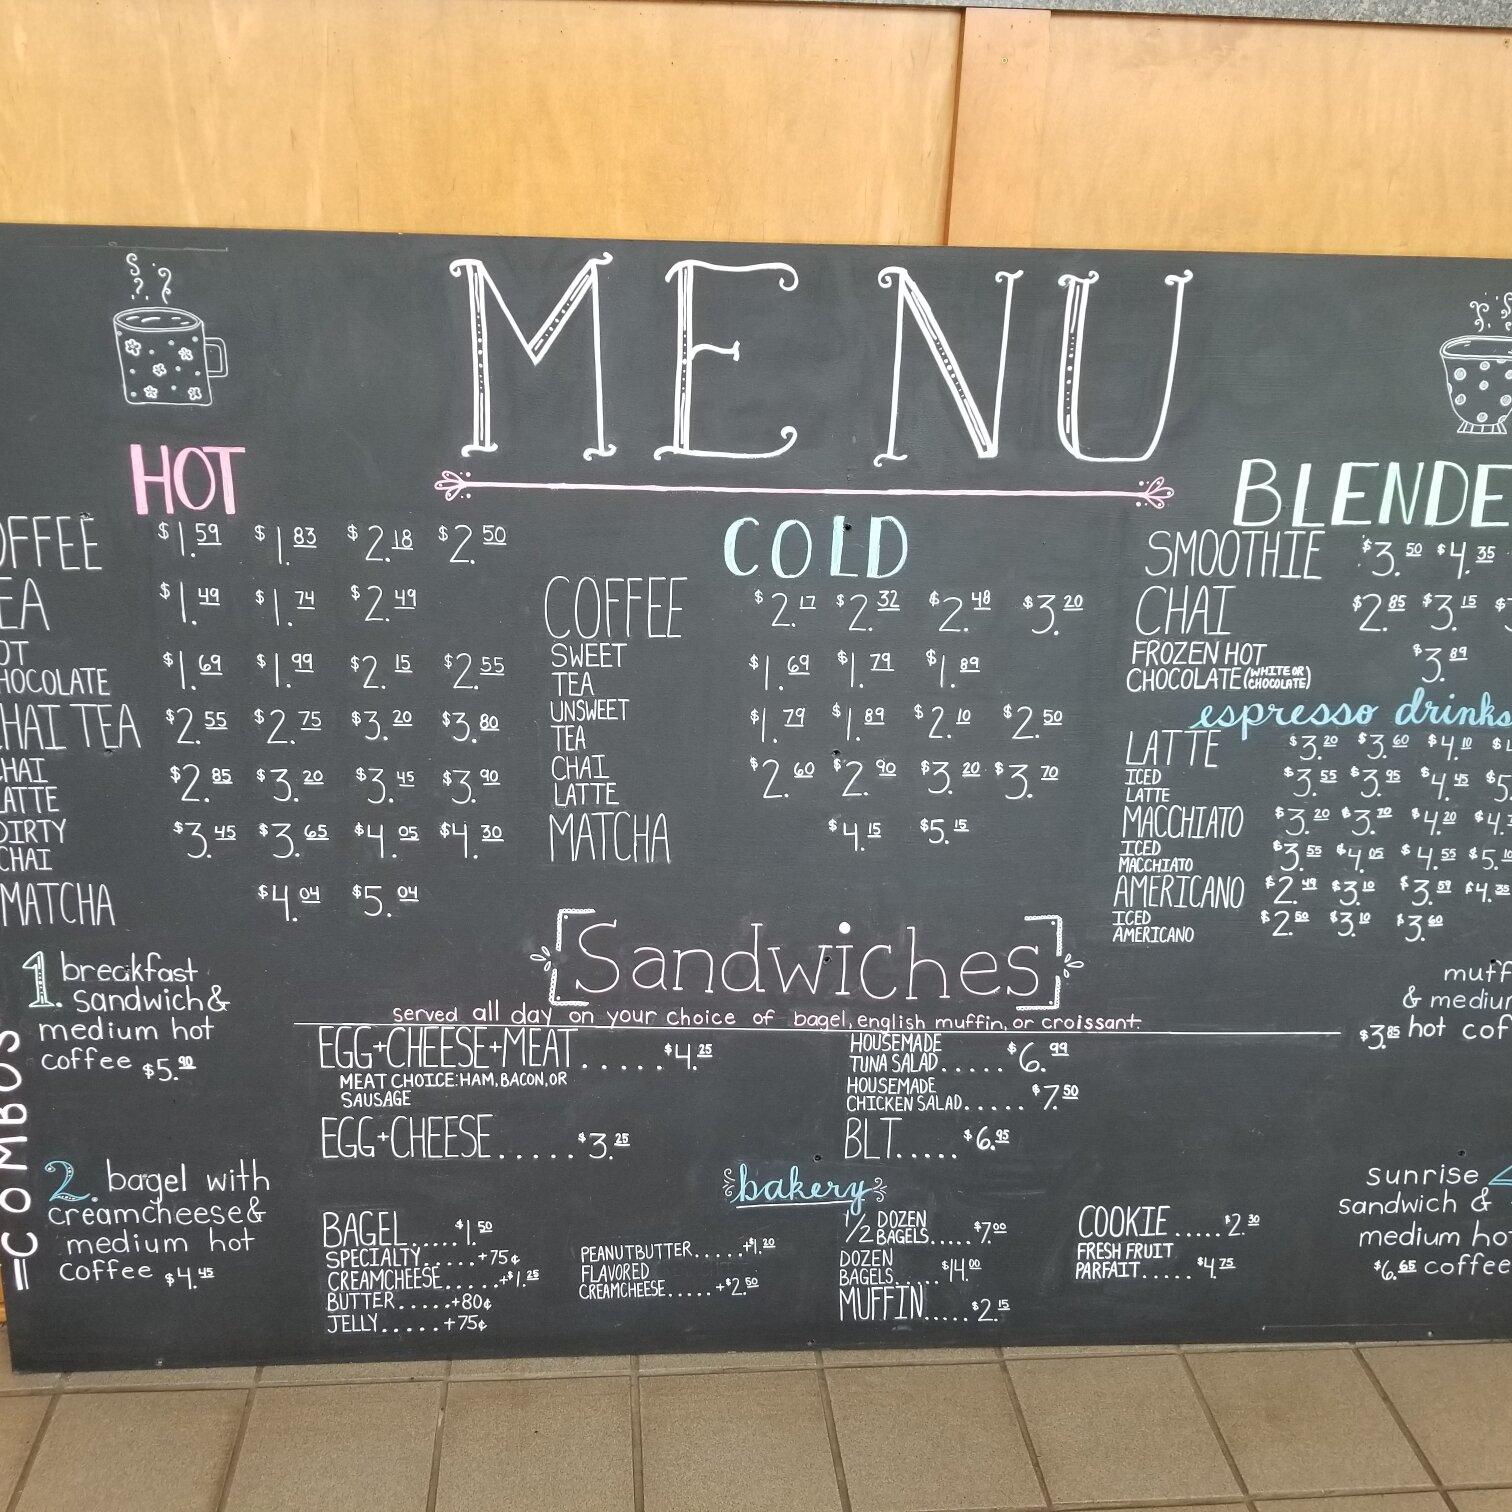 MENU
HOT
OFFEE $1.59 $1.83 $2.18 $2.50
EA $1.49 $1.74 $2.49
OT
HOCOLATE $1.69 $1.99 $2.15 $2.55
HAI TEA $2.55 $2.75 $3.20 $3.80
HAI
ATTE $2.85 $3.20 $3.45 $3.90
DIRTY
CHAI $3.45 $3.65 $4.05 $4.30
MATCHA $4.04 $5.04
COLD
COFFEE $2.17 $2.32 $2.48 $3.20
SWEET
TEA $1.69 $1.79 $1.89
UNSWEET
TEA $1.79 $1.89 $2.10 $2.50
CHAI
LATTE $2.60 $2.90 $3.20 $3.70
MATCHA $4.15 $5.15
BLENDE
SMOOTHIE $3.50 $4.35
CHAI $2.85 $3.15 $
FROZEN HOT
CHOCOLATE (WHITE OR CHOCOLATE) $3.89
espresso drinks
LATTE $3.20 $3.60 $4.10 $
ICED
LATTE $3.55 $3.95 $4.45 $5.
MACCHIATO $3.20 $3.70 $4.20 $4.
ICED
MACCHIATO $3.55 $4.05 $4.55 $5.10
AMERICANO $2.49 $3.10 $3.59 $4.35
ICED
AMERICANO $2.50 $3.10 $3.60
COMBOS
1. breakfast
sandwich &
medium hot
coffee $5.90
2. bagel with
creamcheese &
medium hot
coffee $4.45
Sandwiches
served all day on your choice of bagel, english muffin, or croissant.
EGG+CHEESE+MEAT......$4.25
MEAT CHOICE: HAM, BACON, OR
SAUSAGE
EGG+CHEESE......$3.25
HOUSEMADE
TUNA SALAD.....$6.99
HOUSEMADE
CHICKEN SALAD.....$7.50
BLT.....$6.95
bakery
BAGEL.....$1.50
SPECIALTY.....+75¢
CREAMCHEESE.....+$1.25
BUTTER.....+80¢
JELLY.....+75¢
PEANUTBUTTER.....+$1.20
FLAVORED
CREAMCHEESE.....+$2.50
1/2 DOZEN
BAGELS.....$7.00
DOZEN
BAGELS.....$14.00
MUFFIN.....$2.15
COOKIE.....$2.30
FRESH FRUIT
PARFAIT.....$4.75
muff
& mediu
$3.85 hot cof
sunrise
sandwich &
medium ho
$6.65 coffee